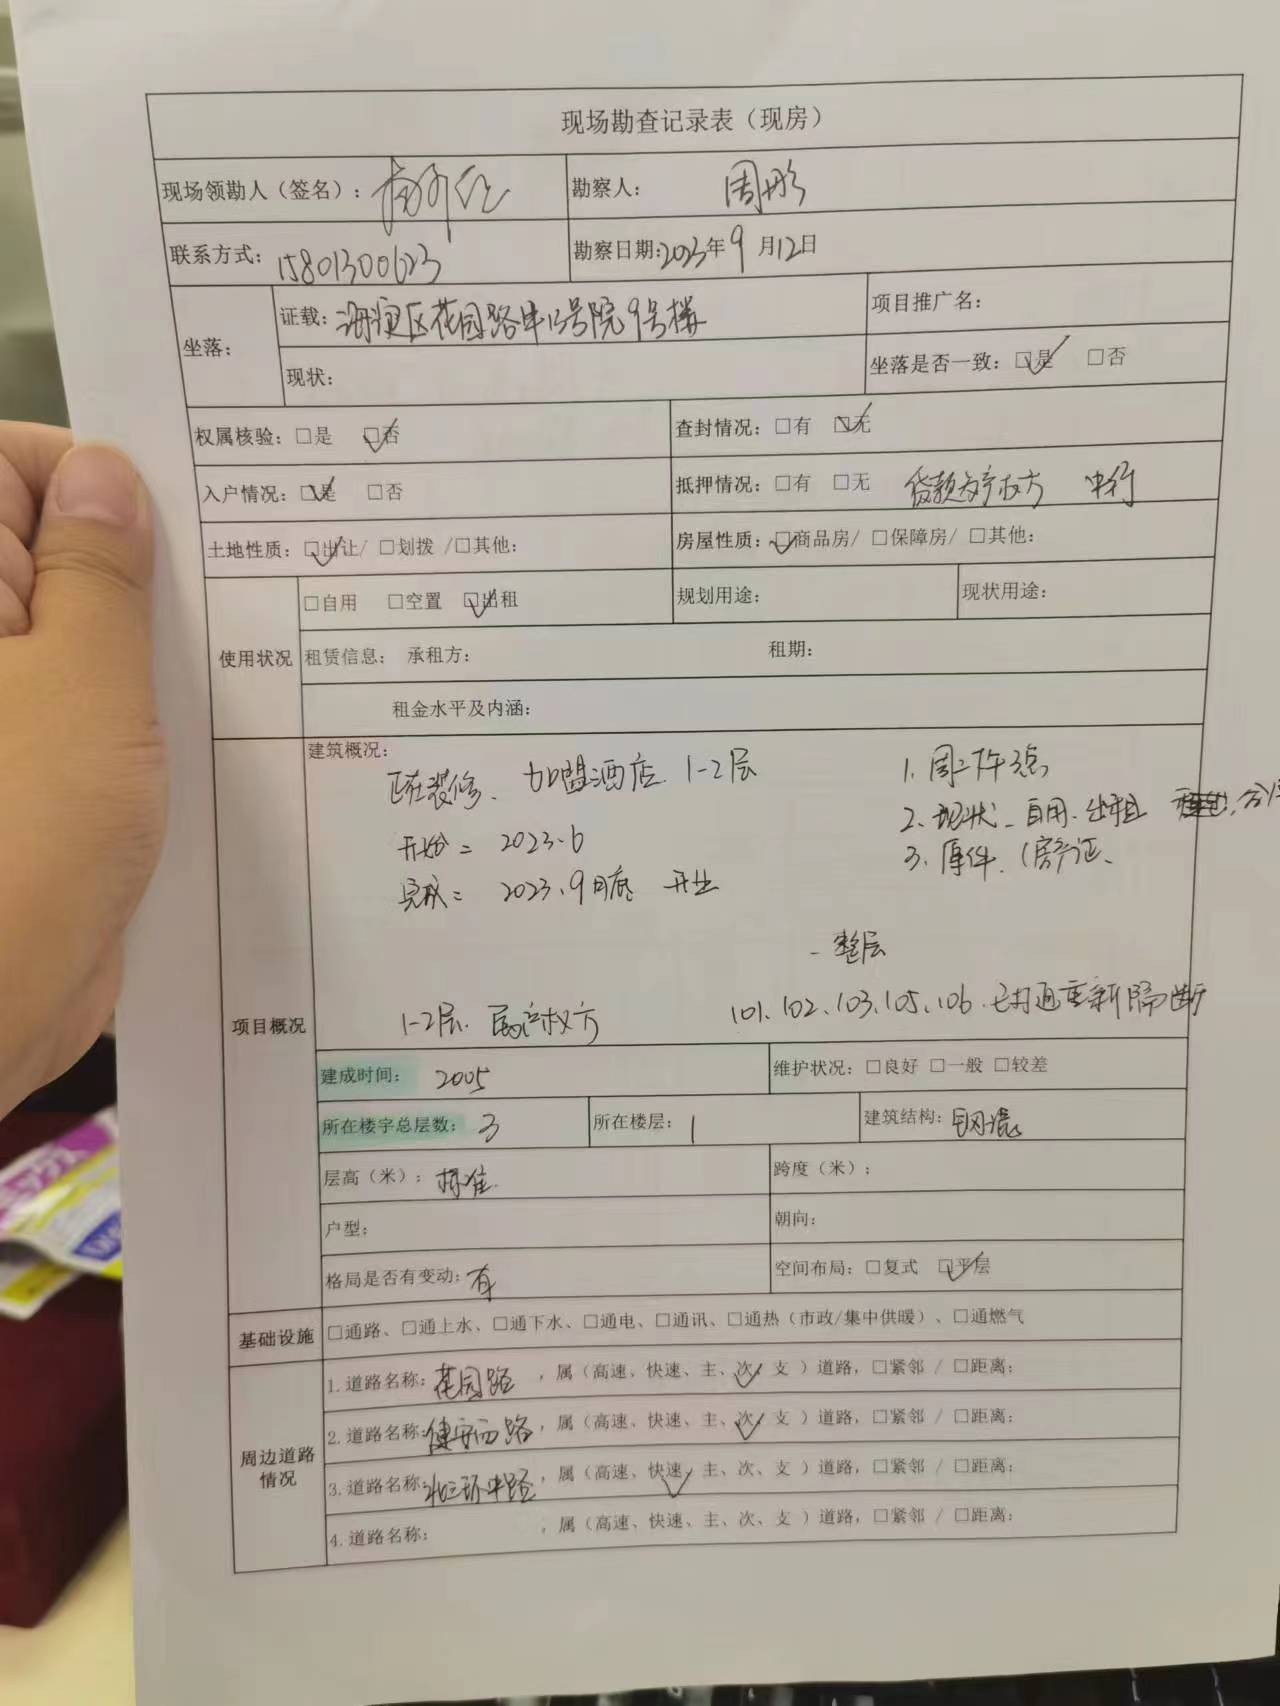 现场勘查记录表（现房）
现场领勘人（签名）： 勘察人： 周彤
联系方式：15801300623 勘察日期:2023年9月12日
坐落： 证载：海淀区花园路甲13号院9号楼 项目推广名：
现状： 坐落是否一致：☑是 □否
权属核验：□是 ☑否 查封情况：□有 ☑无
入户情况：☑是 □否 抵押情况：□有 □无 贷款 产权方 中行
土地性质：☑出让/ □划拨 /□其他： 房屋性质：☑商品房/ □保障房/ □其他：
使用状况 □自用 □空置 ☑出租 规划用途： 现状用途：
租赁信息： 承租方： 租期：
租金水平及内涵：
项目概况 建筑概况：
正在装修、加盟酒店 1-2层 1、周二下午
开始= 2023.6 2、现状_自用.出租
完成= 2023.9月底 开业 3、原件、(房产证、
-整层
1-2层. 产权方 101、102、103、105、106.已打通重新隔断
建成时间： 2005 维护状况：□良好 □一般 □较差
所在楼宇总层数：3 所在楼层：1 建筑结构：钢混
层高（米）：标准 跨度（米）：
户型： 朝向：
格局是否有变动：有 空间布局：□复式 ☑平层
基础设施 □通路、□通上水、□通下水、□通电、□通讯、□通热（市政/集中供暖）、□通燃气
周边道路情况 1.道路名称：花园路 ，属（高速、快速、主、次✓支 ）道路，□紧邻 / □距离：
2.道路名称：健安西路，属（高速、快速、主、次✓支 ）道路，□紧邻 / □距离：
3.道路名称：北三环中路，属（高速、快速✓主、次、支 ）道路，□紧邻 / □距离：
4.道路名称： ，属（高速、快速、主、次、支 ）道路，□紧邻 / □距离：